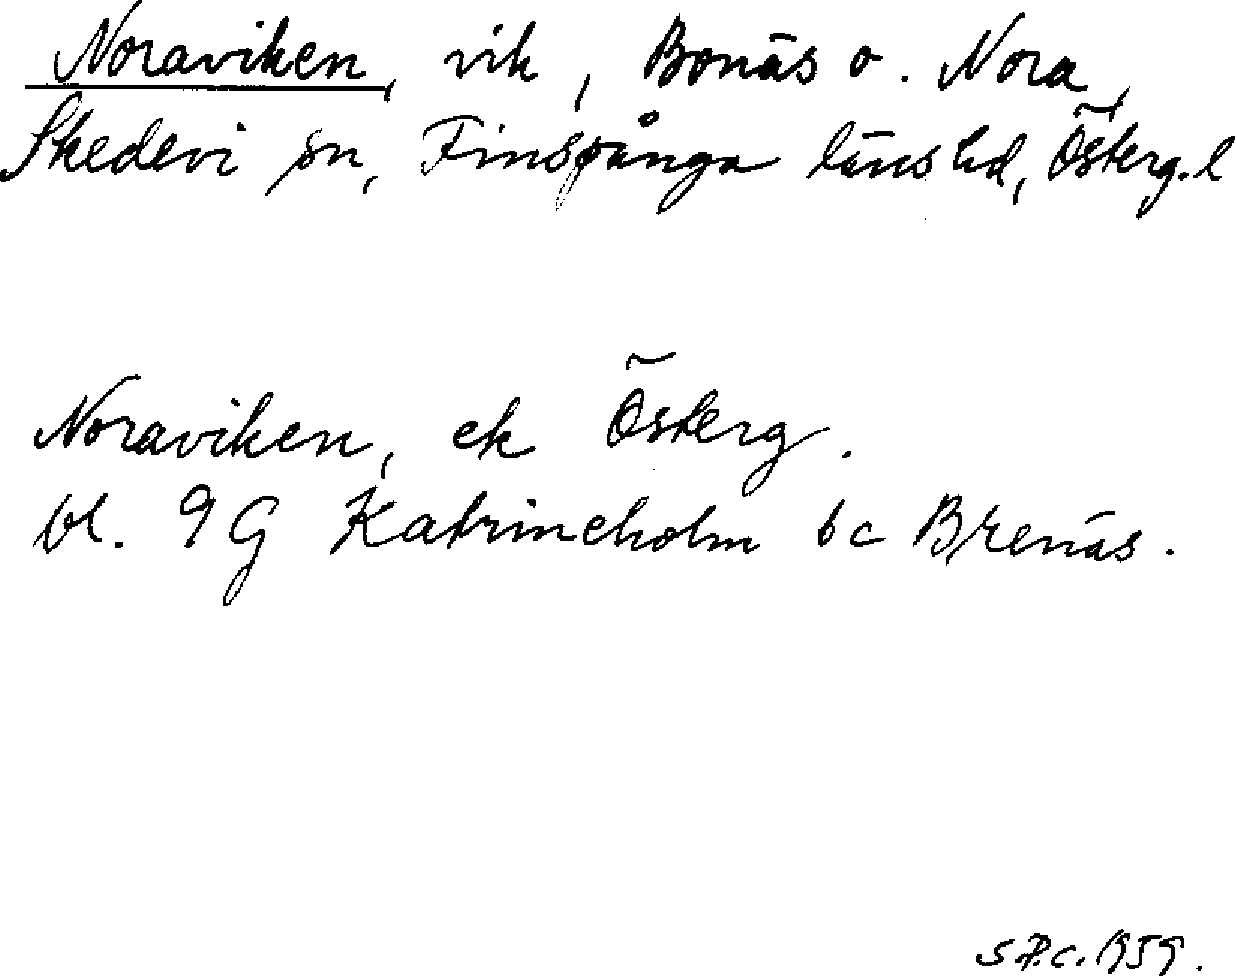 Noraviken, vik, Bonäs o. Nora,
Skedevi sn, Finspånga läns hd, Österg. l
Noraviken, ek Österg.
bl. 9G Katrineholm 6c Brenäs.
1959.